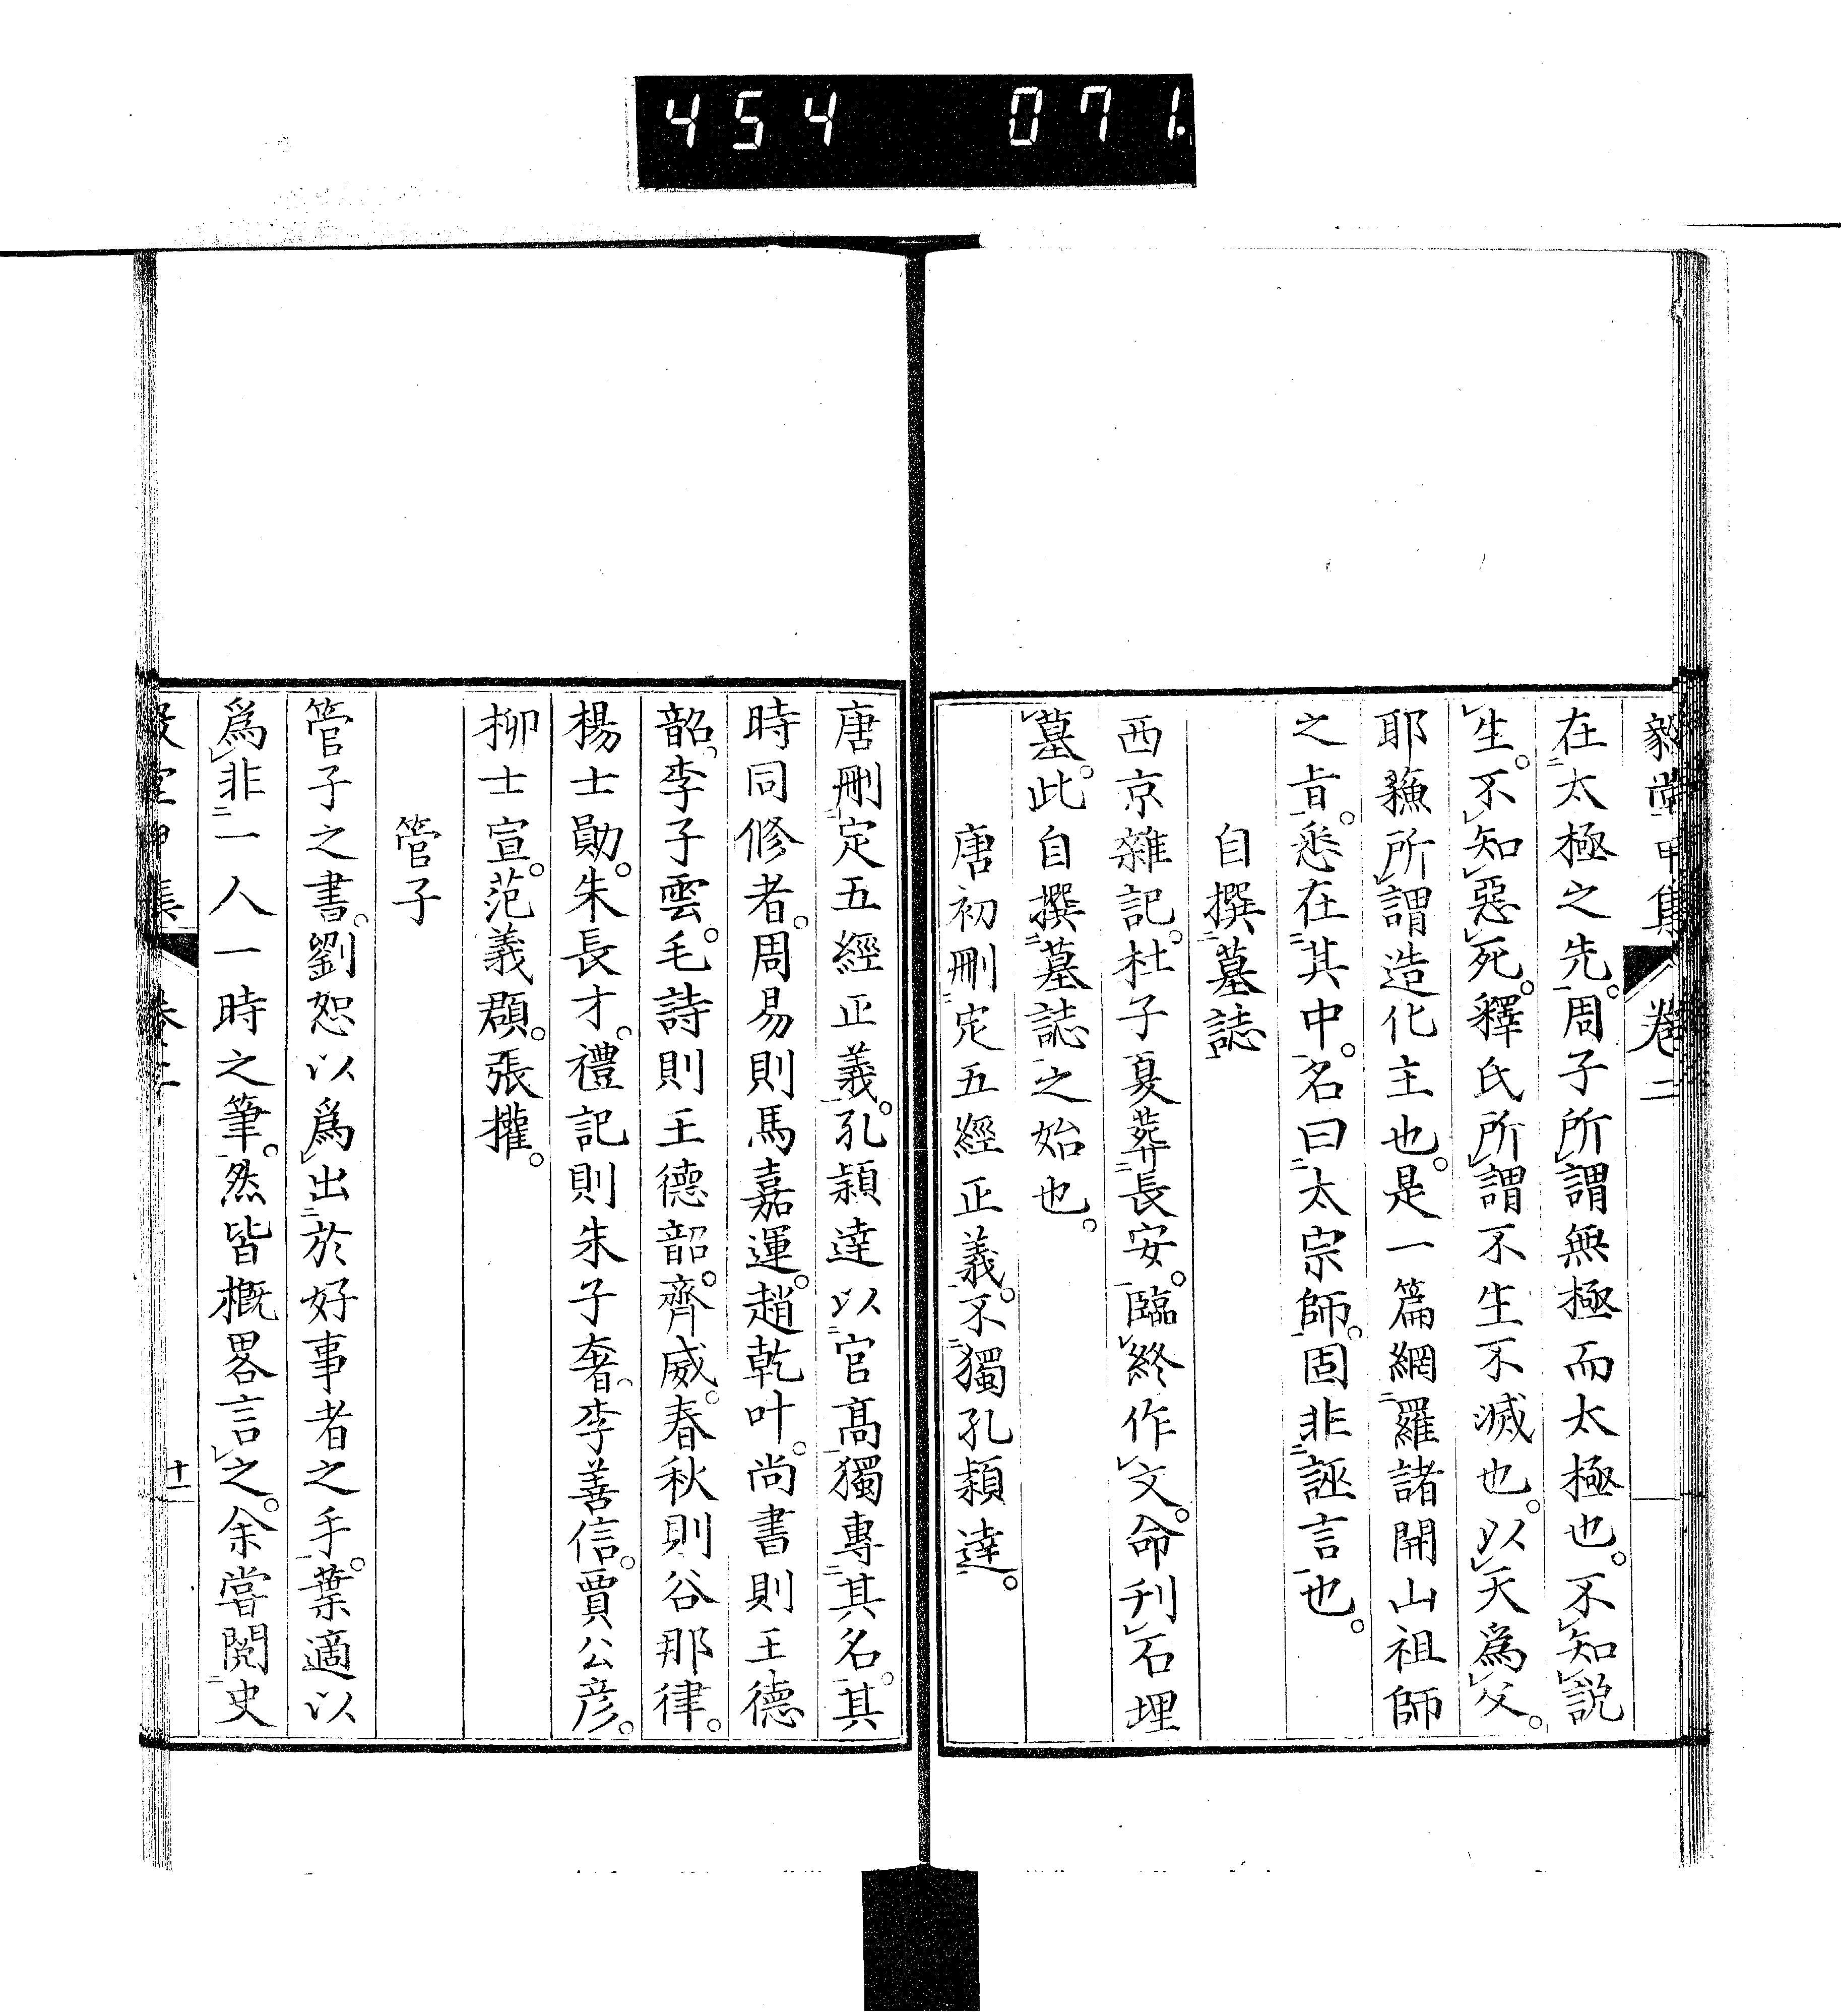 454 071.
毅堂甲集 卷二
在太極之先。周子所謂無極而太極也。不知說
生。不知惡死。釋氏所謂不生不滅也。以天爲父。
耶蘓所謂造化主也。是一篇網羅諸開山祖師
之旨。悉在其中。名曰太宗師。固非誣言也。
自撰墓誌
西京雜記。杜子夏葬長安。臨終作文。命刋石埋
墓。此自撰墓誌之始也。
唐初刪定五經正義。不獨孔穎達。
唐刪定五經正義。孔穎達以官高獨專其名。其
時同修者。周易則馬嘉運。趙乾叶。尚書則王德
韶。李子雲。毛詩則王德韶。齊威。春秋則谷那律。
楊士勛。朱長才。禮記則朱子奢。李善信。賈公彥。
柳士宣。范義頵。張權。
管子
管子之書。劉恕以爲出於好事者之手。葉適以
爲非一人一時之筆。然皆概畧言之。余嘗閱史
十一